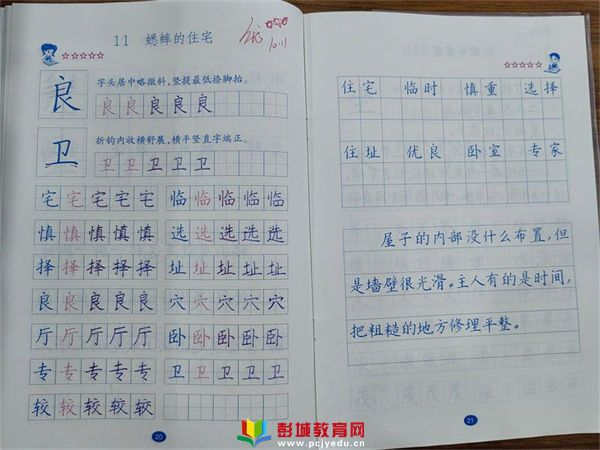 11 蟋蟀的住宅
优
10.11
字头居中略微斜,竖提最低捺脚抬。
良 良良良良良
折钩内收横舒展,横平竖直字端正。
卫 卫卫卫卫卫
宅宅宅宅宅 临临临临临
慎慎慎慎慎 选选选选选
择择择择择 址址址址址
良良良良良 穴穴穴穴穴
厅厅厅厅厅 卧卧卧卧卧
专专专专专 卫卫卫卫卫
较较较较较
20
住宅 临时 慎重 选择
住址 优良 卧室 专家
屋子的内部没什么布置,但
是墙壁很光滑。主人有的是时间,
把粗糙的地方修理平整。
21
彭城教育网
www.pcjyedu.cn